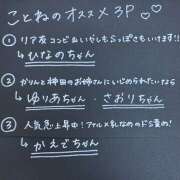 ことねのオススメ3P♡♡
① リア友コンビ&いやしもSっぽさもいけます!!
ひなのちゃん
② かりんと神田のお姉さんにいじめられたいなら
ゆりあちゃん・さおりちゃん
③ 人気急上昇中!アナルメス乳なめのドS責め!
かえでちゃん